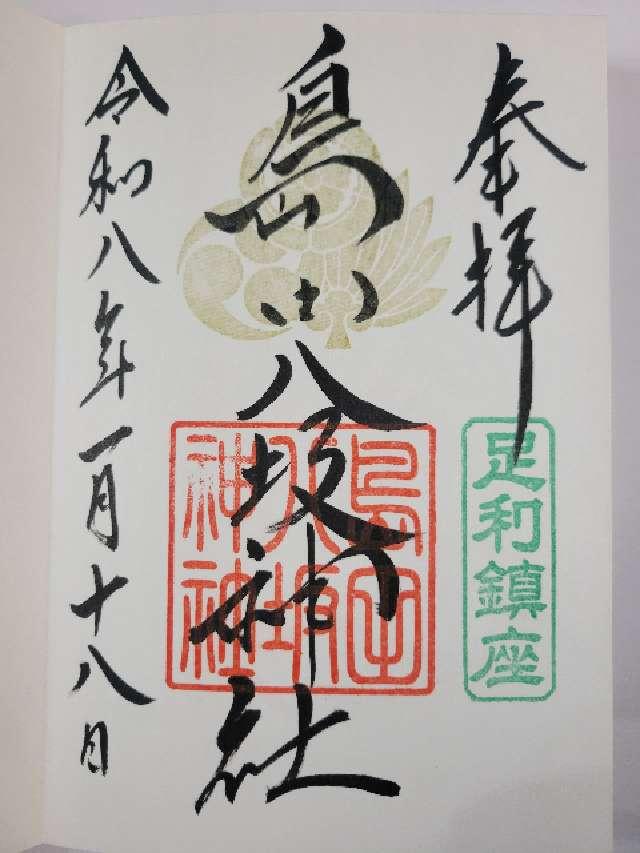 奉拝
足利鎮座
島田八坂神社
島田
八坂
神社
令和八年一月十八日